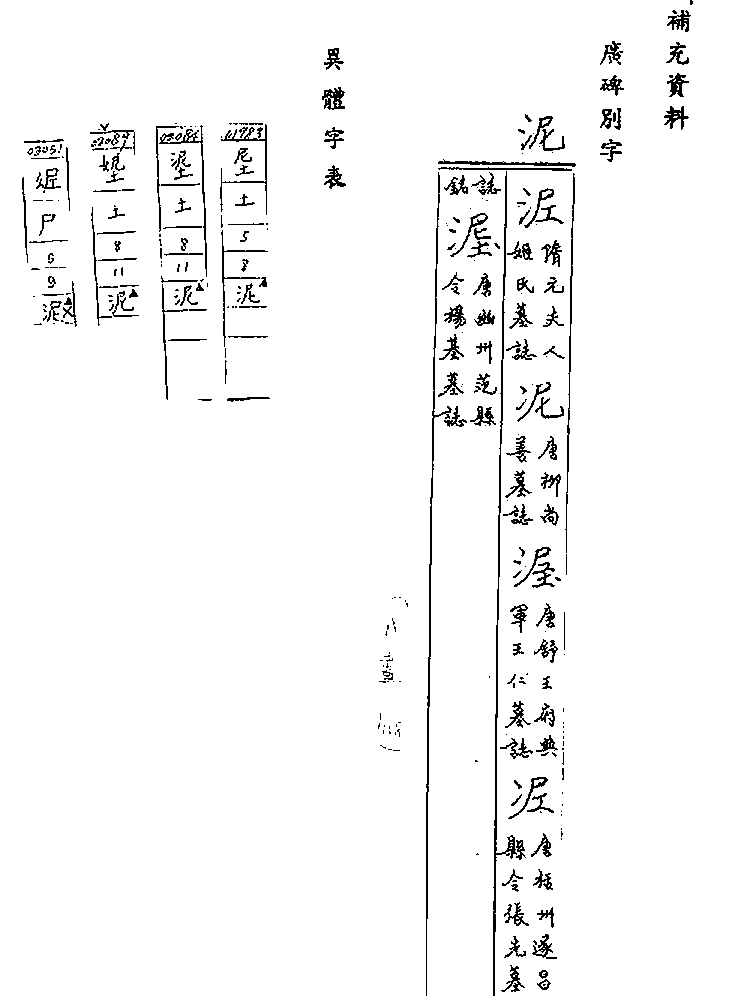 補充資料
廣碑別字
泥
隋元夫人
姬氏墓誌
唐柳尚
善墓誌
唐舒王府典
軍王仁墓誌
唐括州遂昌
縣令張先墓
誌
銘
唐幽州范縣
令楊基墓誌
異體字表
01783
土
5
8
泥▲
02086
埿
土
8
11
泥▲
02089
土
8
11
泥▲
03051
尸
6
9
泥▲